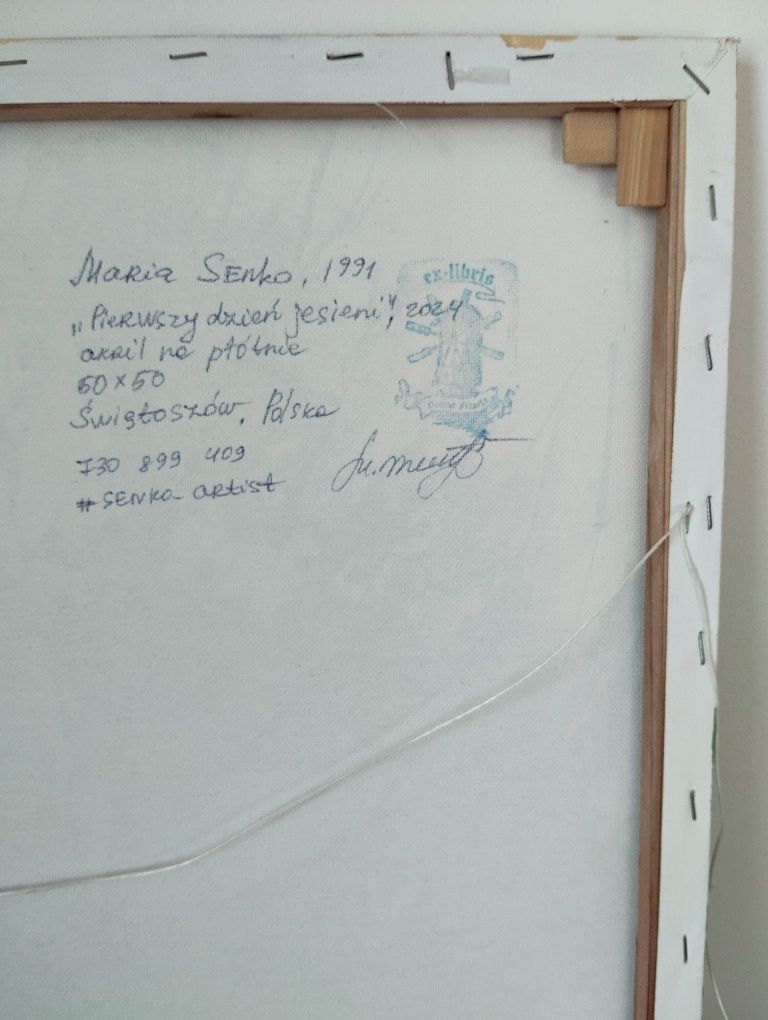 Maria Senko, 1991
„Pierwszy dzień jesieni”, 2024
akril na płótnie
50 x 50
Świętoszów, Polska
730 899 409
#senko_artist
ex-libris